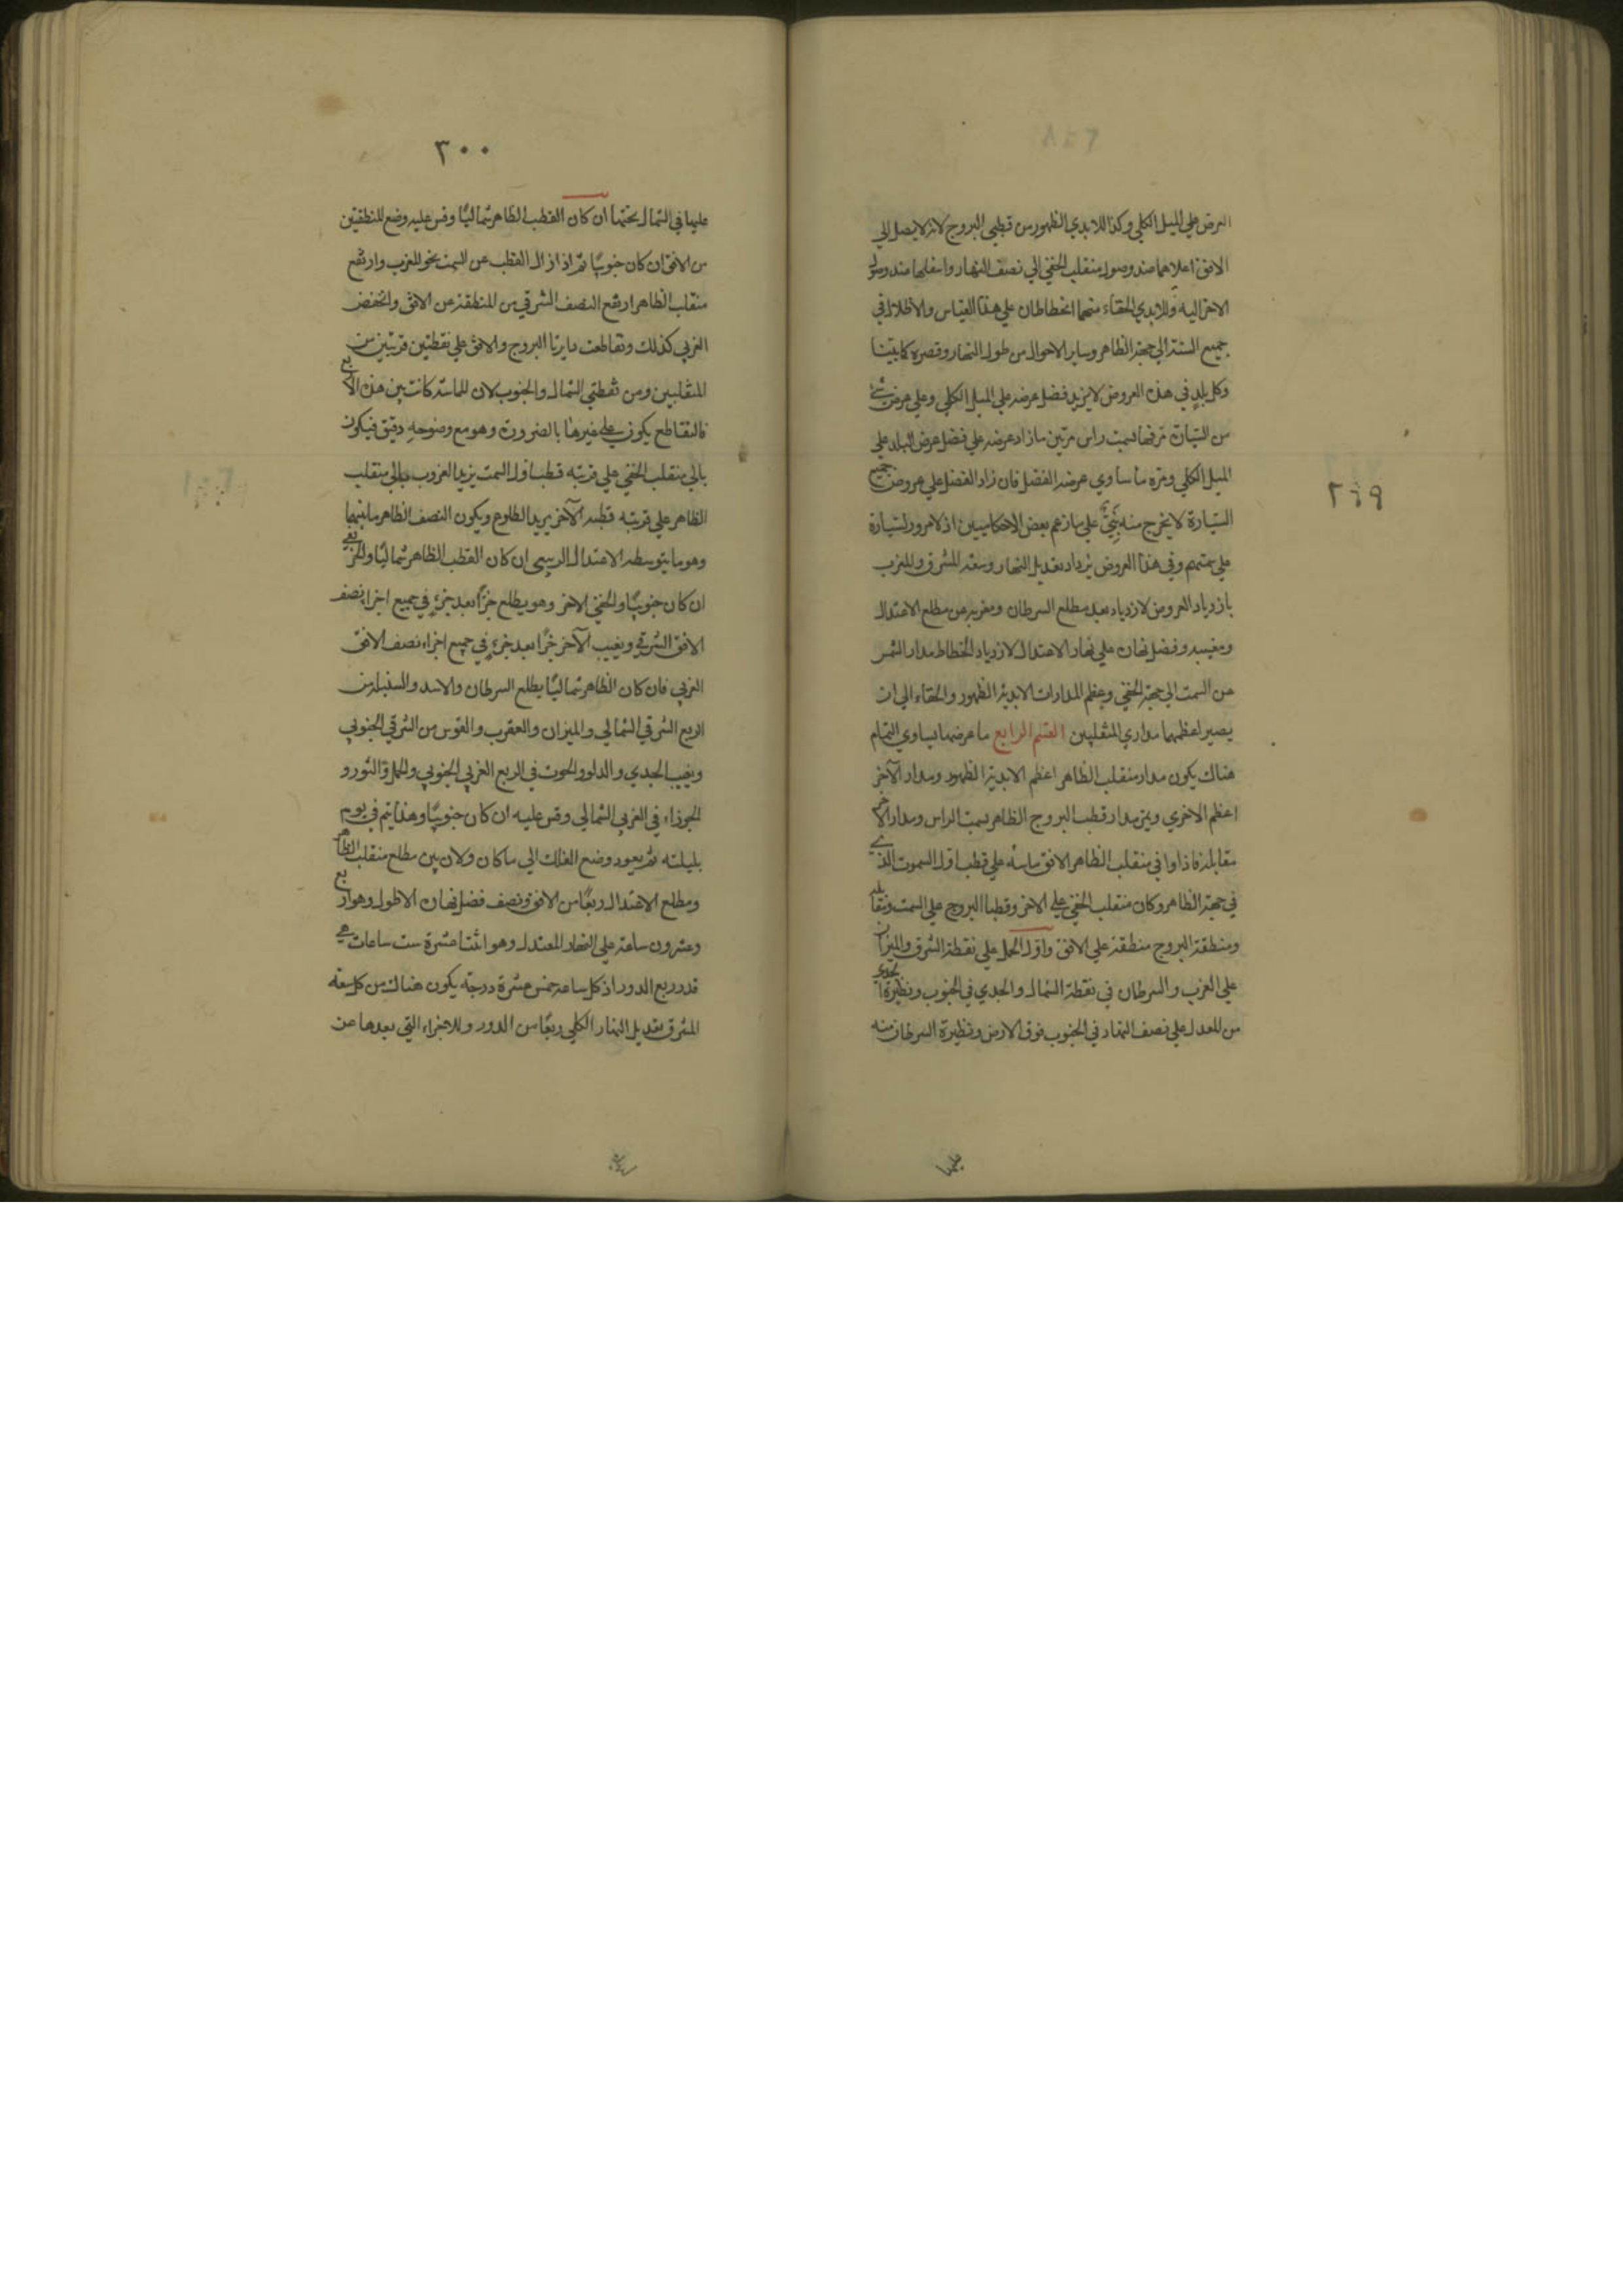 ٢٩٩
العرض علي الميل الكلي وكذا للابدي الظهور من قطبي البروج لانه لا يصل الي
الافق اعلاهما عند وصول منقلب الخفي الي نصف النهار واسفلهما عند وصول
الاخر اليه وللابدي الخفاء منهما انحطاطان علي هذا القياس والاظلال في
جميع السنة الي جهة الظاهر وساير الاحوال من طول النهار وقصره كما بيّنا
وكل بلدٍ في هذه العروض لا يزيد فضل عرضه علي الميل الكلي وعلي عرض شئ
من السيّارة مر فيها بسمت راس مرتين ما زاد عرضه علي فضل عرض البلد علي
الميل الكلي ومرة ما ساوي عرضه الفضل فان زاد الفضل علي عروض جميع
السيّارة لا يخرج منه نبيّ علي ما زعم بعض الاحكاميين اذ لا مرور لسيارة
علي سمتهم وفي هذا العروض يزداد تعديل النهار وسعة المشرق والمغرب
بازدياد العروض لازدياد بعد مطلع السرطان ومغربه عن مطلع الاعتدال
ومغيبه وفضل نهاره علي نهار الاعتدال لازدياد انحطاط مدار الشمس
عن السمت الي جهة الخفي وعظم المدارات الابدية الظهور والخفاء الي ان
يصير اعظمهما مداري المنقلبين القسم الرابع ما عرضها يساوي التمام
هناك يكون مدار منقلب الظاهر اعظم الابدية الظهور ومدار الآخر
اعظم الاخري ويمر مدار قطب البروج الظاهر بسمت الراس ومدار الاخر
مقابله فاذا وافي منقلب الظاهر الافق ماسه علي قطب اول السموت الذي
في جهة الظاهر وكان منقلب الخفي علي الاخر وقطبا البروج علي السمت ومقابله
ومنطقة البروج منطقة علي الافق واول الحمل علي نقطة الشرق والميزان
علي الغرب والسرطان في نقطة الشمال والجدي في الجنوب ونظيرة الجدي
من المعدل علي نصف النهار في الجنوب فوق الارض ونظيرة السرطان منه
عليها
٣٠٠
عليها في الشمال تحتها ان كان القطب الظاهر شماليًا وقس عليه وضع المنطقتين
من الافق ان كان جنوبيًا ثم اذا زال القطب عن السمت نحو المغرب وارتفع
منقلب الظاهر ارتفع النصف الشرقي من المنطقة عن الافق وانخفض
الغربي كذلك وتقاطعت دايرتا البروج والافق علي نقطتين قريبتين من
المنقلبين ومن نقطتي الشمال والجنوب لان المماسة كانت بين هذه الاربع
فالتقاطع يكون علي غيرها بالضرورة وهو مع وضوحه دقيق فيكون
يالي منقلب الخفي علي قربته قطب اول السمت يزيد الغروب يالي منقلب
الظاهر علي قربته قطبه الآخر يريد الطلوع ويكون النصف الظاهر ما بينهما
وهو ما يتوسطه الاعتدال الربيعي ان كان القطب الظاهر شماليًا والخريفي
ان كان جنوبيًا والخفي الاخر وهو يطلع جزءًا بعد جزءٍ في جميع اجزاء نصف
الافق الشرقي ويغيب الآخر جزءًا بعد جزءٍ في جميع اجزاء نصف الافق
الغربي فان كان الظاهر شماليًا يطلع السرطان والاسد والسنبلة من
الربع الشرقي الشمالي والميزان والعقرب والقوس من الشرقي الجنوبي
ويغيب الجدي والدلو والحوت في الربع الغربي الجنوبي والحمل والثور و
الجوزاء في الغربي الشمالي وقس عليه ان كان جنوبيًا وهذا يتم في يوم
بليلته ثم يعود وضع الفلك الي ما كان ولان بين مطلع منقلب الظاهر
ومطلع الاعتدال ربعًا من الافق ونصف فضل نهاره الاطول وهو اربع
وعشرون ساعة علي النهار المعتدل وهو اثنتا عشرة ست ساعات هي
قدر ربع الدور اذ كل ساعة خمس عشرة درجة يكون هناك من كل سعة
المشرق تعديل النهار الكلي ربعًا من الدور وللاجزاء التي بعدها عن